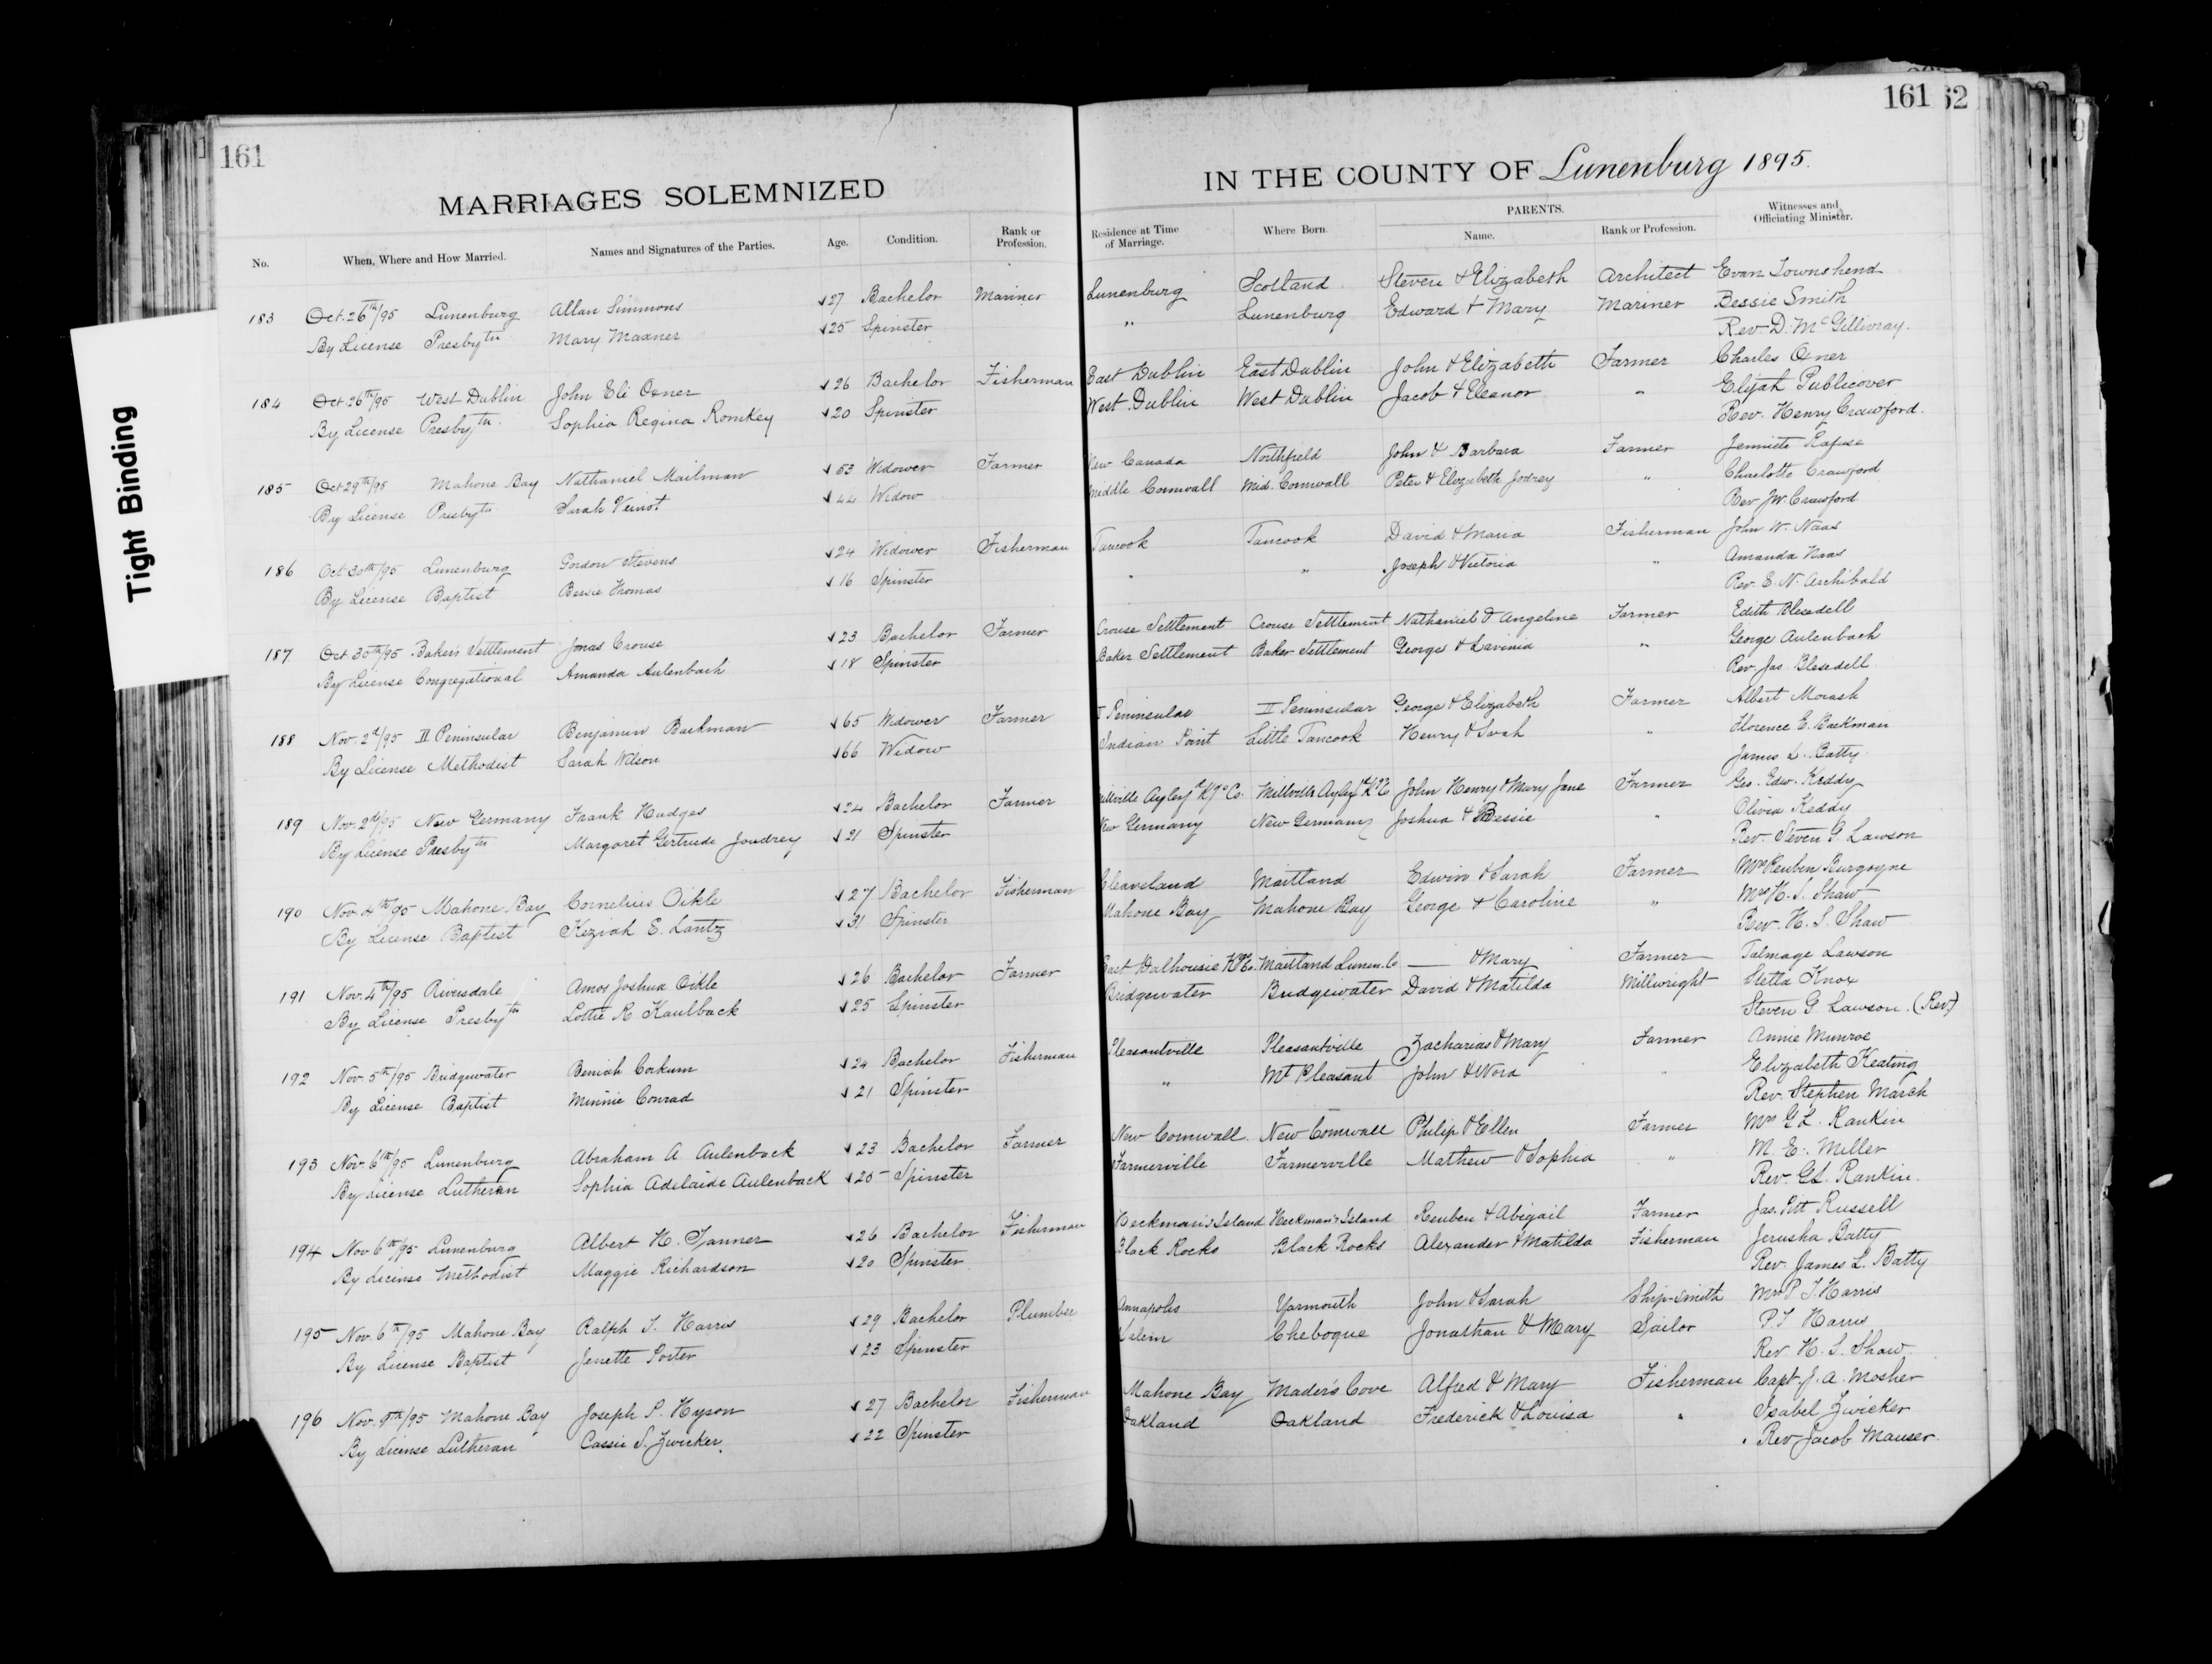 Tight Binding
161
161 62
MARRIAGES SOLEMNIZED IN THE COUNTY OF Lunenburg 1895.
No. When, Where and How Married. Names and Signatures of the Parties. Age. Condition. Rank or Profession. Residence at Time of Marriage. Where Born. PARENTS. Name. Rank or Profession. Witnesses and Officiating Minister.
183 Oct. 26th/95 Lunenburg Allan Simmons 27 Bachelor Mariner Lunenburg Scotland Steven & Elizabeth Architect Evan Townshend
By License Presbytn Mary Maxner 25 Spinster " Lunenburg Edward & Mary Mariner Bessie Smith
Rev D. McGillivray.
184 Oct 26th/95 West Dublin John Eli Oxner 26 Bachelor Fisherman East Dublin East Dublin John & Elizabeth Farmer Charles Oxner
By License Presbytn. Sophia Regina Romkey 20 Spinster West Dublin West Dublin Jacob & Eleanor " Elijah Publicover
Rev. Henry Crawford.
185 Oct 29th/95 Mahone Bay Nathaniel Mailman 53 Widower Farmer New Canada Northfield John & Barbara Farmer Rafuse
By License Presbytn Sarah Veinot 44 Widow Middle Cornwall Mid. Cornwall Peter & Elizabeth Jodrey " Charlotte Crawford
Rev JW Crawford
186 Oct 30th/95 Lunenburg Gordon Stevens 24 Widower Fisherman Tancook Tancook David & Maria Fisherman John W. Naas
By License Baptist Bessie Thomas 16 Spinster " " Joseph & Victoria " Amanda Naas
Rev. E. N. Archibald
187 Oct 30th/95 Baker's Settlement Jonas Crouse 23 Bachelor Farmer Crouse Settlement Crouse Settlement Nathaniel & Angeline Farmer Edith Blesedell
By License Congregational Amanda Aulenbach 18 Spinster Baker Settlement Baker Settlement George & Lavinia " George Aulenbach
Rev Jas. Blesedell
188 Nov. 2d/95 II Peninsular Benjamin Backman 65 Widower Farmer Peninsular II Peninsular George & Elizabeth Farmer Albert Morash
By License Methodist Sarah Wilson 66 Widow Indian Point Little Tancook Henry & Sarah " Florence E. Backman
James L. Batty
189 Nov. 2d/95 New Germany Frank Hudges 24 Bachelor Farmer Millville Co. Millville John Henry & Mary Jane Farmer Geo. Edw. Keddy
By License Presbytn Margaret Gertrude Joudrey 21 Spinster New Germany New Germany Joshua & Bessie " Olivia Keddy
Rev. Steven G. Lawson
190 Nov. 4th/95 Mahone Bay Cornelius Oikle 27 Bachelor Fisherman Cleaveland Maitland Edwin & Sarah Farmer Mrs Reuben Burgoyne
By License Baptist Keziah E. Lantz 31 Spinster Mahone Bay Mahone Bay George & Caroline " Mrs H. S. Shaw
Rev. H. S. Shaw
191 Nov. 4th/95 Riversdale Amos Joshua Oikle 26 Bachelor Farmer East Dalhousie K. Co. Maitland Lunen. Co — & Mary Farmer Talmage Lawson
By License Presbytn Lottie R. Kaulback 25 Spinster Bridgewater Bridgewater David & Matilda Millwright Stella Knox
Steven G Lawson. (Rev)
192 Nov. 5th/95 Bridgewater Beniah Corkum 24 Bachelor Fisherman Pleasantville Pleasantville Zacharias & Mary Farmer Annie Munroe
By License Baptist Minnie Conrad 21 Spinster " Mt Pleasant John & Nora " Elizabeth Keating
Rev. Stephen March
193 Nov. 6th/95 Lunenburg Abraham A Aulenback 23 Bachelor Farmer New Cornwall New Cornwall Philip & Ellen Farmer Mrs G L. Rankin
By License Lutheran Sophia Adelaide Aulenback 25 Spinster Farmerville Farmerville Mathew & Sophia " M. E. Miller
Rev. G L. Rankin.
194 Nov 6th/95 Lunenburg Albert H. Tanner 26 Bachelor Fisherman Heckman's Island Heckman's Island Reuben & Abigail Farmer Jas. Pitt Russell
By License Methodist Maggie Richardson 20 Spinster Black Rocks Black Rocks Alexander & Matilda Fisherman Jerusha Batty
Rev. James L. Batty
195 Nov. 6th/95 Mahone Bay Ralph S. Harris 29 Bachelor Plumber Annapolis Yarmouth John & Sarah Ship-smith Mrs P. J. Harris
By License Baptist Jenette Porter 23 Spinster Salem Cheboque Jonathan & Mary Sailor P. J Harris
Rev H. S. Shaw
196 Nov. 9th/95 Mahone Bay Joseph P. Hyson 27 Bachelor Fisherman Mahone Bay Mader's Cove Alfred & Mary Fisherman Capt. J. A. Mosher
By License Lutheran Cassie S. Zwicker. 22 Spinster Oakland Oakland Frederick & Louisa " Isabel Zwicker
Rev Jacob Mauser.